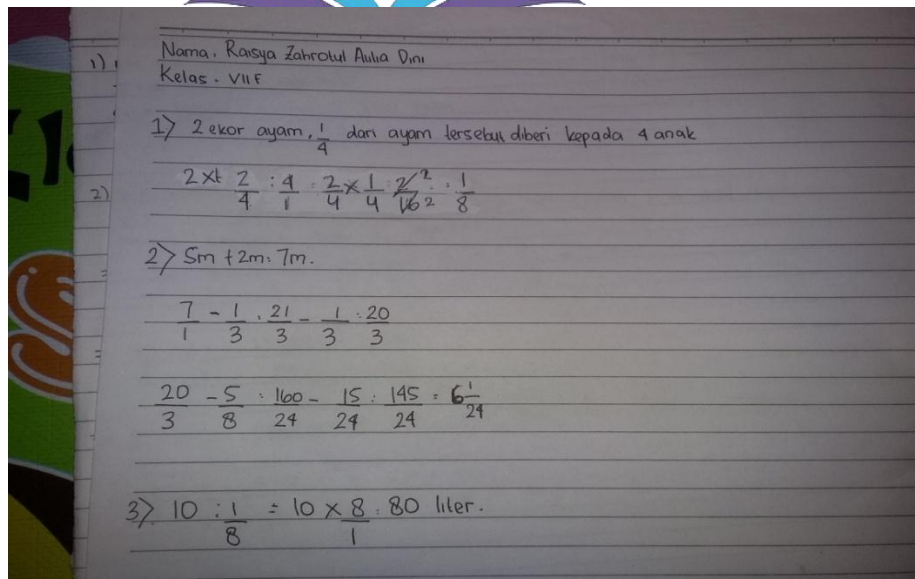 Nama. Raisya Zahrotul Aulia Dini
Kelas. VII F
1) 2 ekor ayam, 1/4 dari ayam tersebut diberi kepada 4 anak
2 x 2/4 : 4/1 = 2/4 x 1/4 = 2/16 : 2/2 = 1/8
2) 5m + 2m = 7m.
7/1 - 1/3 = 21/3 - 1/3 = 20/3
20/3 - 5/8 = 160/24 - 15/24 = 145/24 = 6 1/24
3) 10 : 1/8 = 10 x 8/1 = 80 liter.
1)
2)